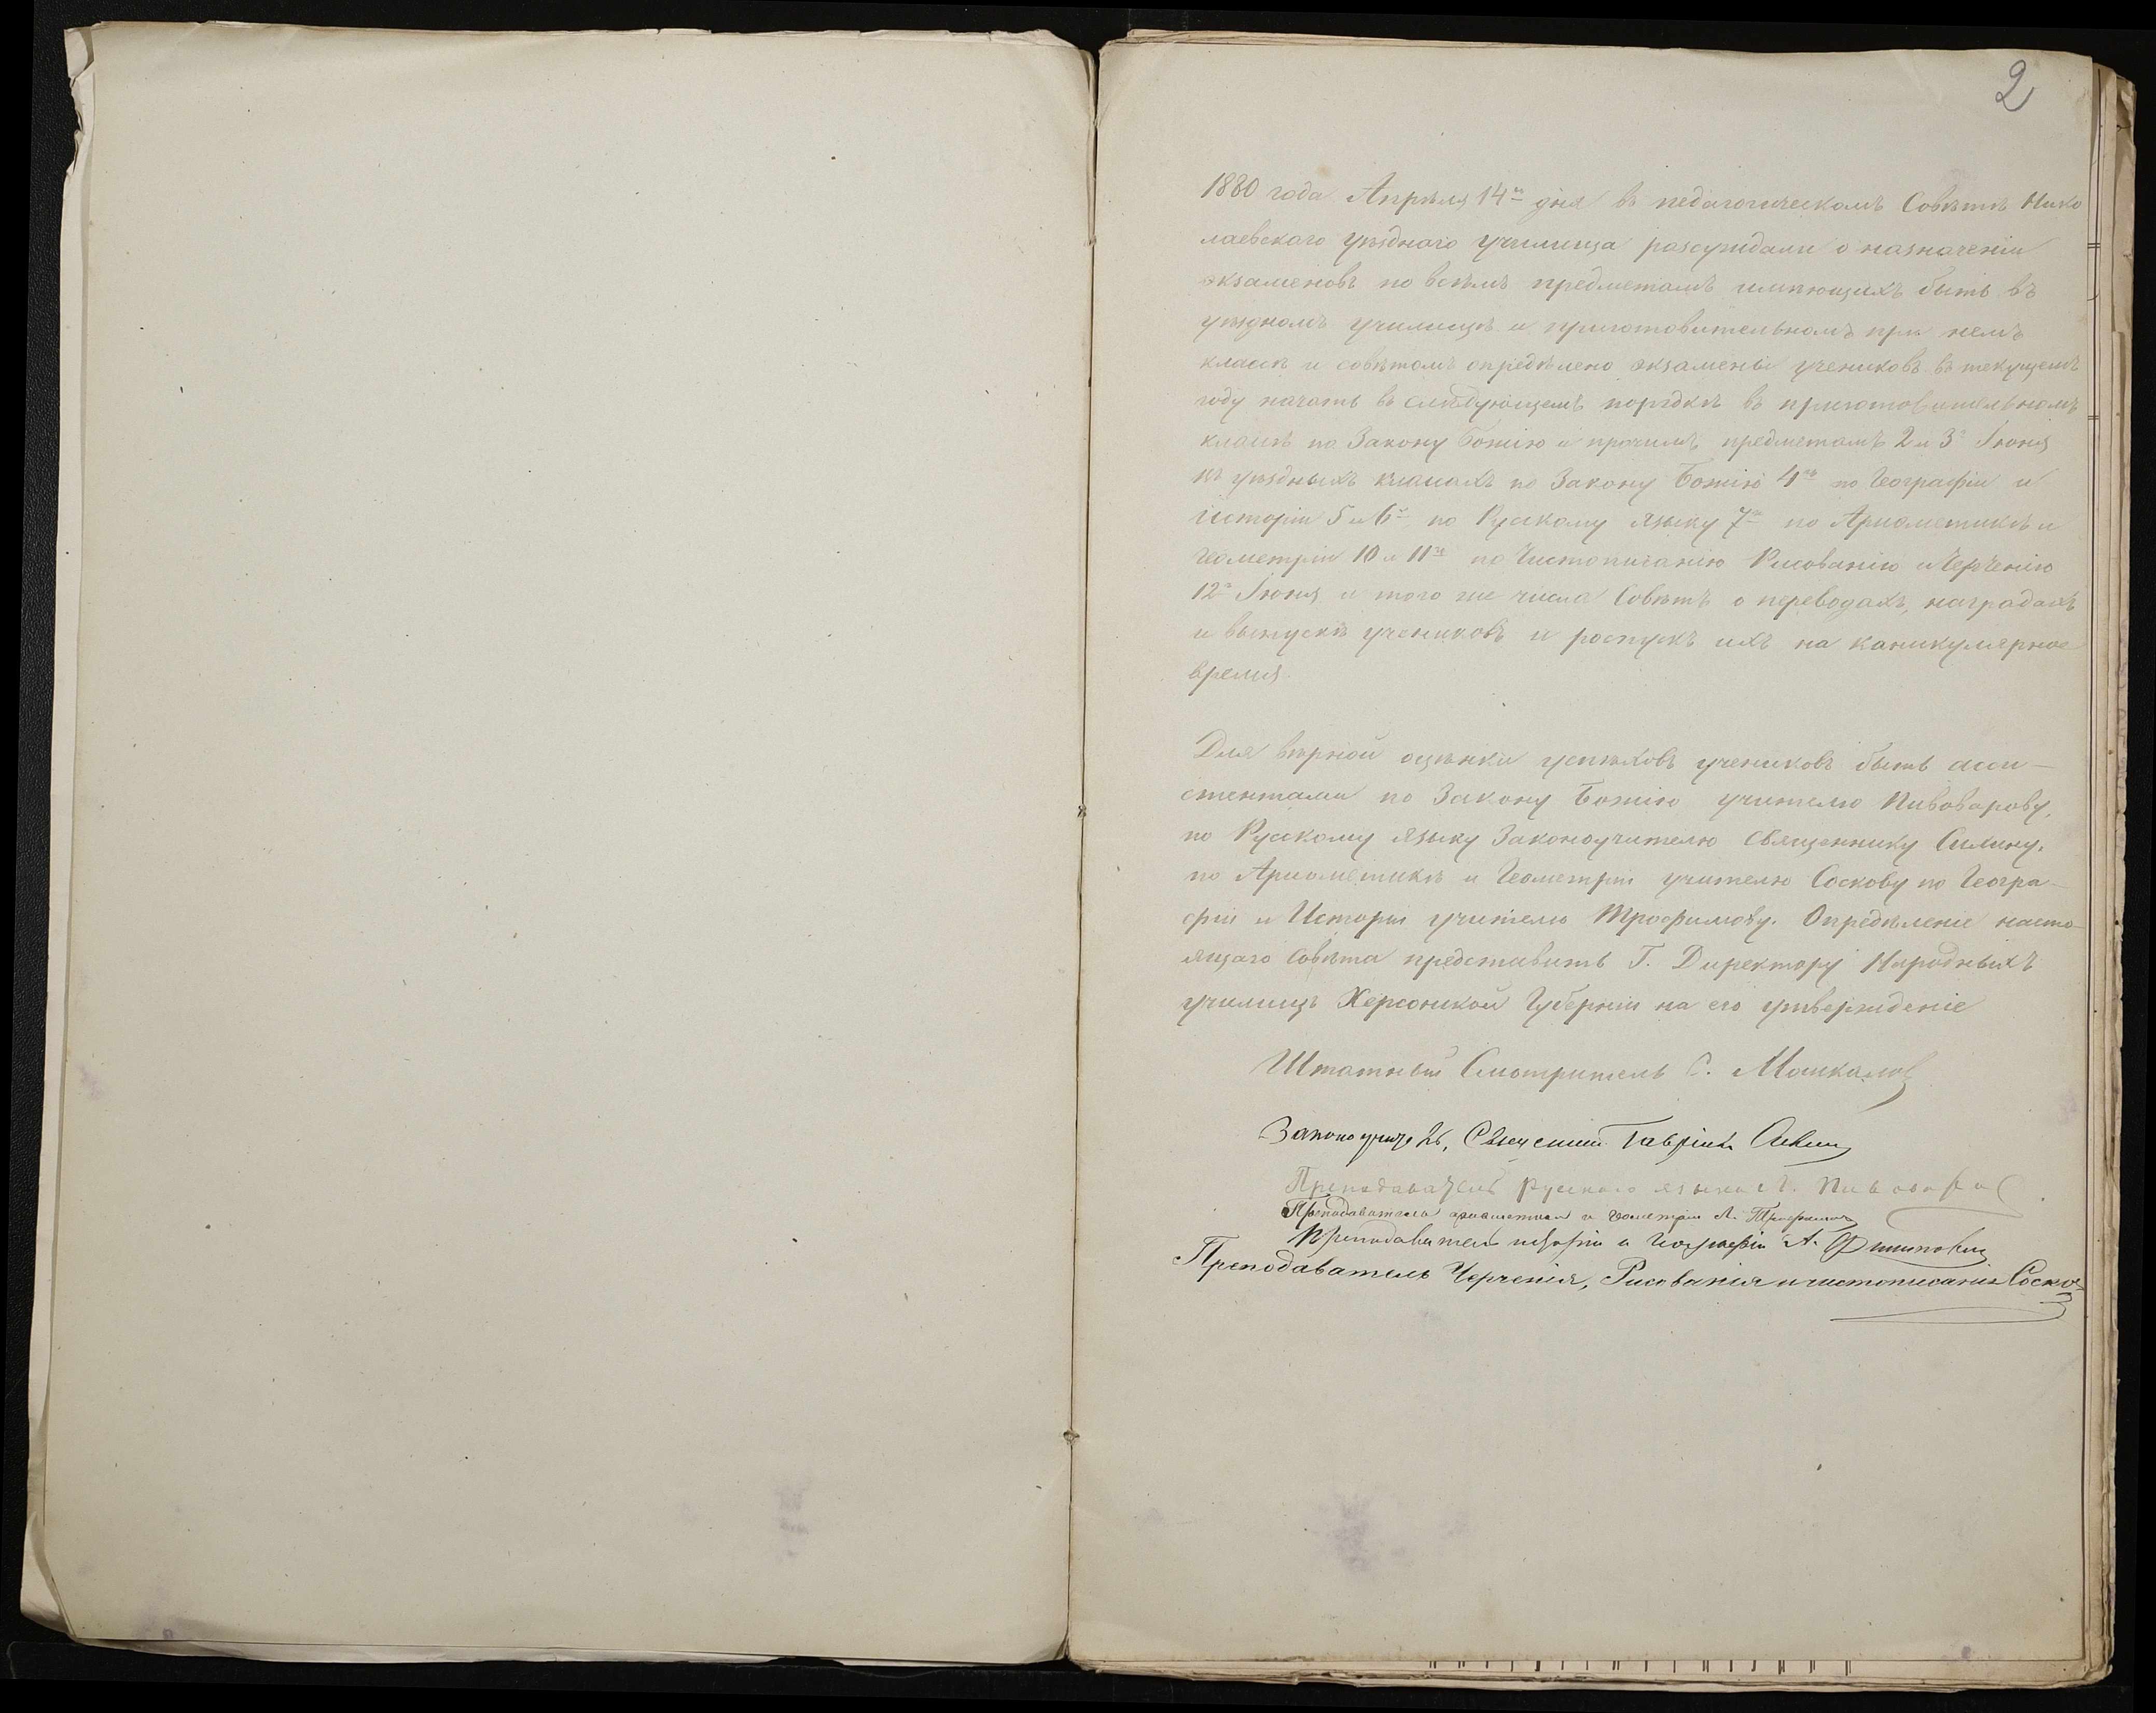 2
1880 года Апрѣля 14го дня въ педагогическомъ Совѣтѣ Нико
лаевскаго уѣзднаго училища разсуждали о назначеніи
экзаменовъ по всѣмъ предметамъ имѣющихъ быть въ
уѣздномъ училищѣ и приготовительномъ при немъ
классѣ и совѣтомъ опредѣлено экзамены учениковъ въ текущемъ
году начать въ слѣдующемъ порядкѣ въ приготовительномъ
классѣ по Закону Божію и прочимъ предметамъ 2 и 3го Іюня
въ уѣздныхъ классахъ по Закону Божію 4го по Географіи и
Исторіи 5 и 6го по Русскому языку 7го по Ариѳметикѣ и
Геометріи 10 и 11го по Чистописанію Рисованію и Черченію
12го Іюня и того же числа Совѣтъ о переводахъ, наградахъ
и выпускѣ учениковъ и роспускъ ихъ на каникулярное
время.
Для вѣрной оцѣнки успѣховъ учениковъ быть асси-
стентами по Закону Божію учителю Пивоварову,
по Русскому языку Законоучителю Священнику Силину,
по Ариѳметикѣ и Геометріи учителю Соскову по Геогра-
фіи и Исторіи учителю Трофимову. Опредѣленіе насто-
ящаго Совѣта представить Г. Директору Народныхъ
училищъ Херсонской Губерніи на его утвержденіе
Штатный Смотритель С.
Законоучитель, Священникъ Гавріилъ Силинъ
Преподаватель русскаго языка Пивоваров
Преподаватель ариѳметики и геометріи Л. Трофимовъ
Преподаватель исторіи и Географіи А.
Преподаватель Черченія, Рисованія и чистописанія Сосков